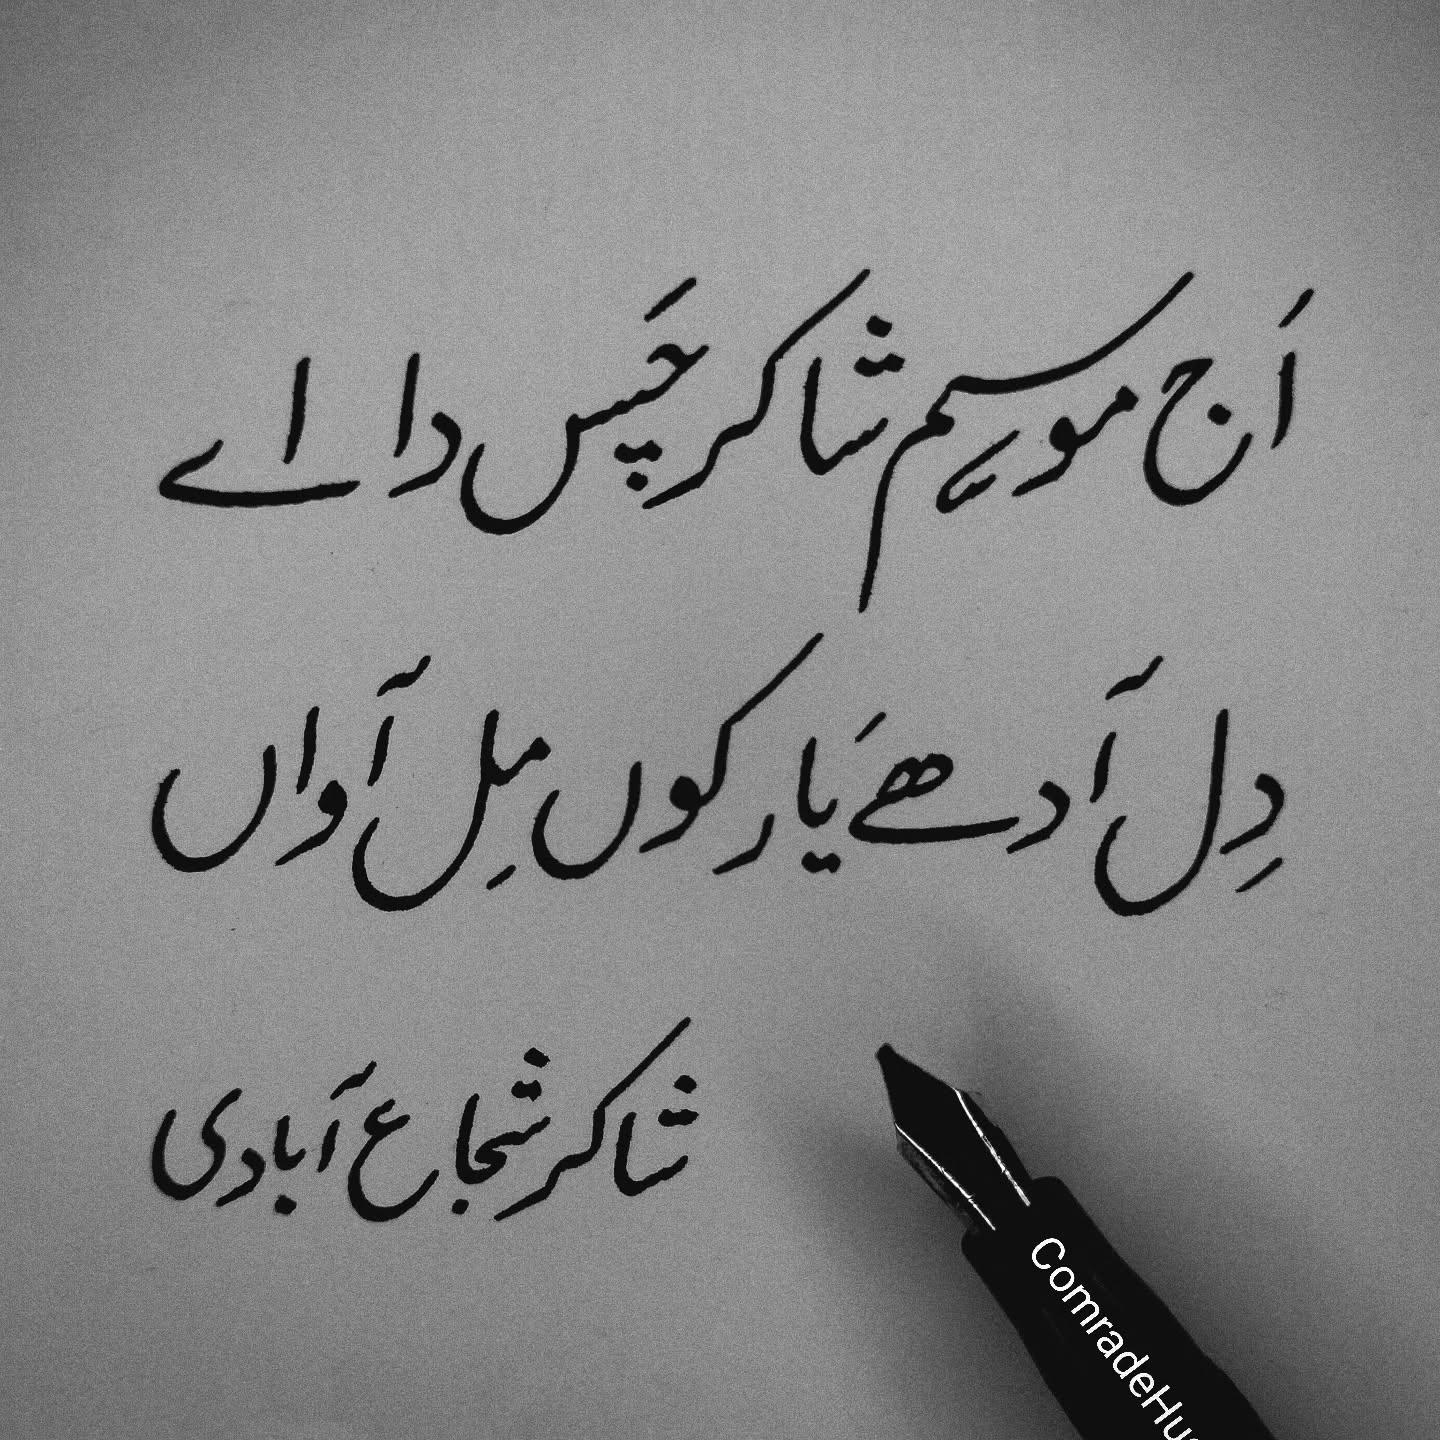 اَج موسِم شاکر چَس دا اے
دِل آدھَے یار کوں مِل آواں
شاکر شجاع آبادی